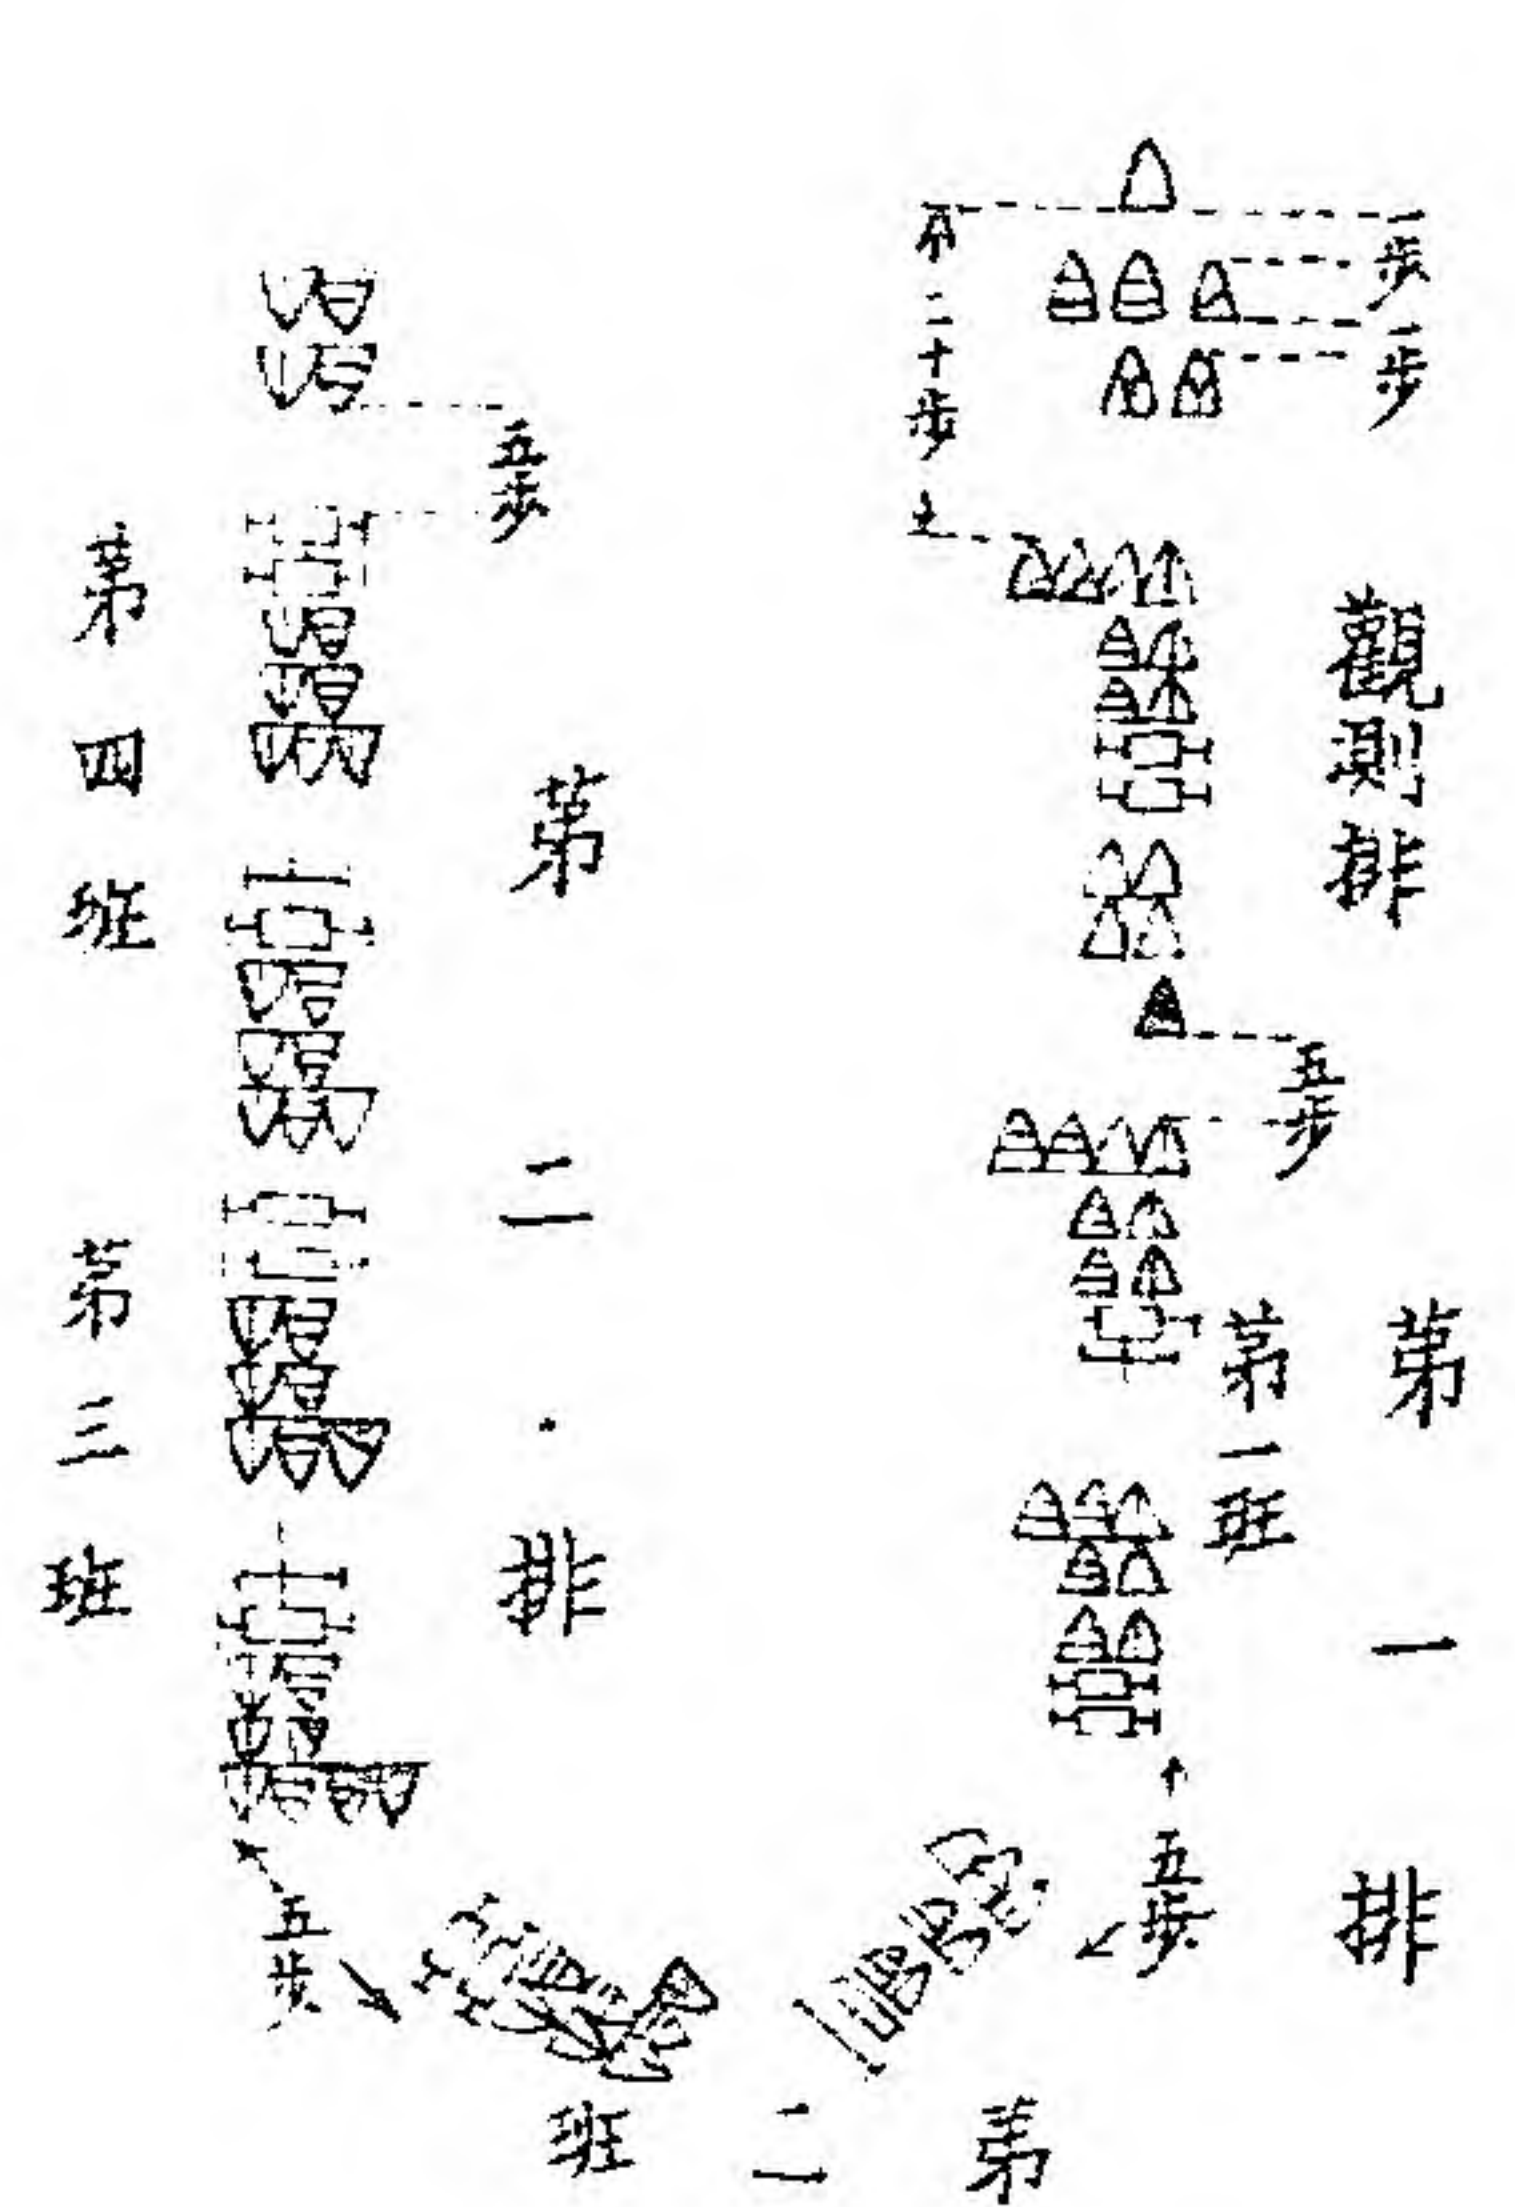 一步
一步
二十步
觀測排
五步
第一排
第一班
五步
第二班
五步
第二排
第三班
第四班
五步